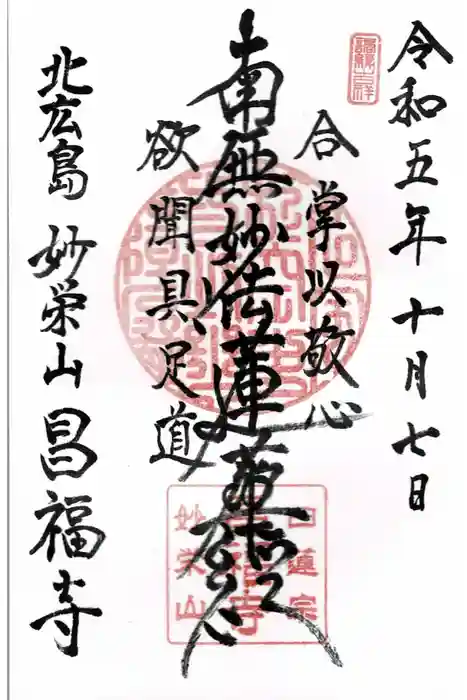 令和五年十月七日
合掌以敬心
南無妙法蓮華経
欲聞具足道
北広島 妙栄山 昌福寺
日蓮宗
昌福寺
妙栄山